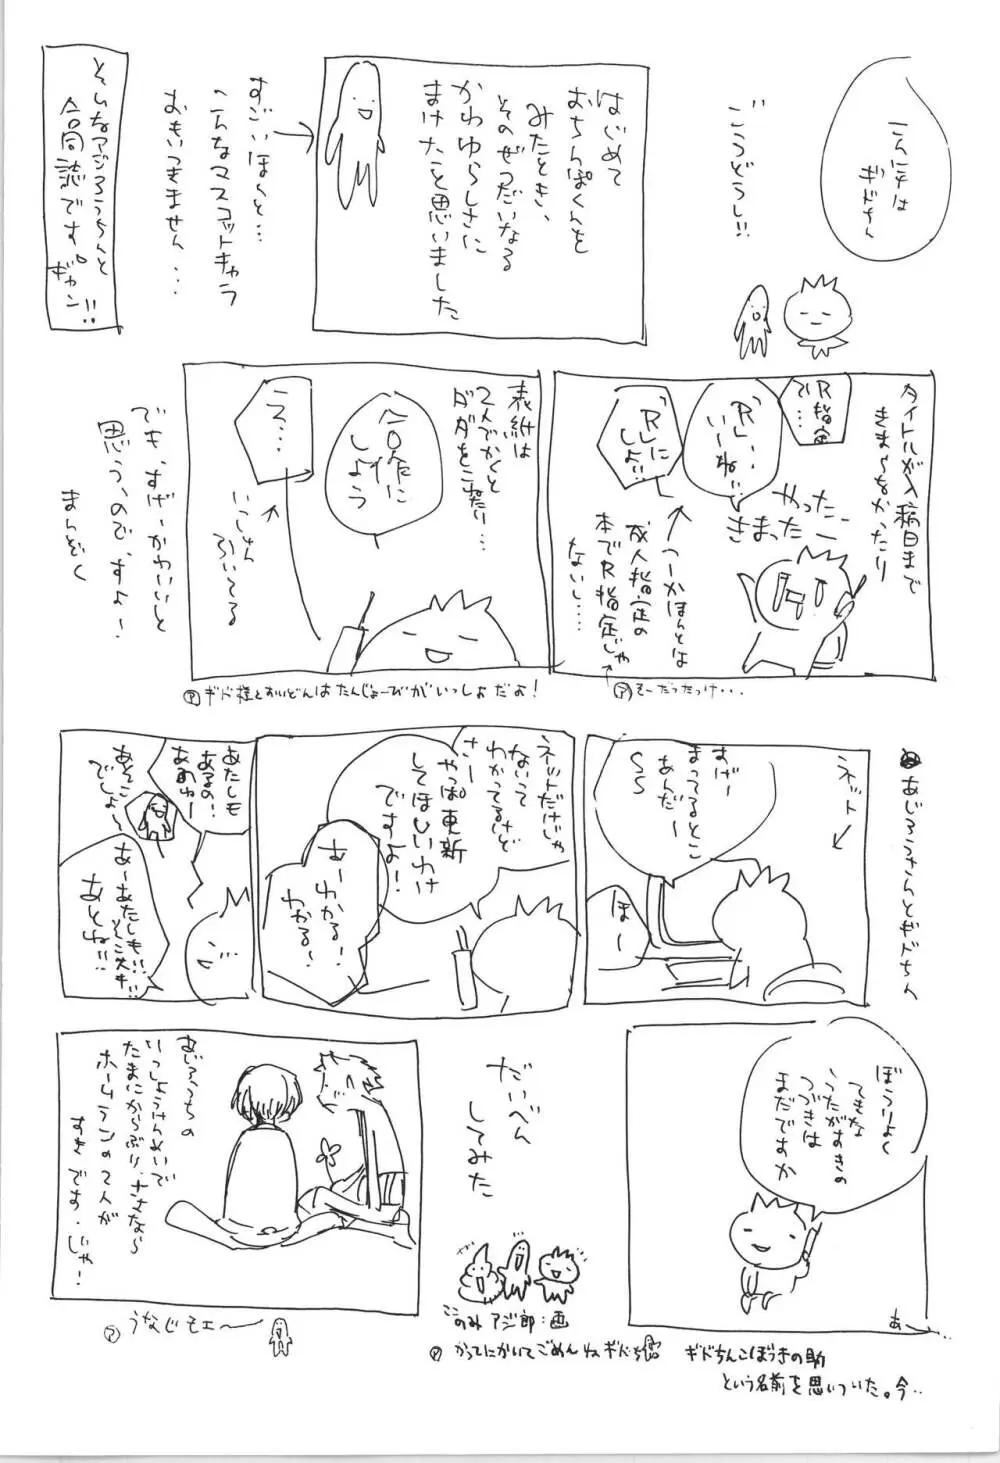 こんにチは
ギドちん
ごうどうし!!
はじめて
おちんぽくんを
みたとき、
そのぜつだいなる
かわゆらしさに
まけたと思いました
すごいほんと…
こんなマスコットキャラ
おもいつきません…
そんなアジろうちんと
合同誌です。ギャン!!
タイトルが入稿日まで
きまらなかったり
R指定
で…
「R」…
いーね…
「R」に
しよ…
やったー
きまったー
つーかほんとは
成人指定の
本でR指定じゃ
ないし…
ア そーだったっけ…
表紙は
2人でかくと
ダダをこねたり…
合作に
しよう
え…
いっしゅん
ひいてる
でも、すげーかわいいと
思う、ので、すよー
まんぞく
ア ギド様とすいどんはたんじょーびがいっしょだよ!
あじろうさんとギドちん
ネット
すげー
まってるとこ
あんだー
SS
ほー
ネットだけじゃ
ないって
わかってるけど
さー
やっぱ更新
してほしいわけ
ですよ!
あーわかる!
わかる!
あたしも
あるの!
あそこ
でしょ〜
あーあたしも…
そこ大キ…
あとね…
ぼうりよく
てきな
うたがすきの
つづきは
まだですか
あー
だいべん
してみた
ここのみ アジ郎:画
ア かってにかいてごめんねギドち
ギドちんこぼうきの助
という名前を思いついた。今‥
あじろうちの
いっしょうけんめいで
たまにからぶり、ナナなら
ホームランの2人が
すきです、じゃ!
ア うなじモエ〜